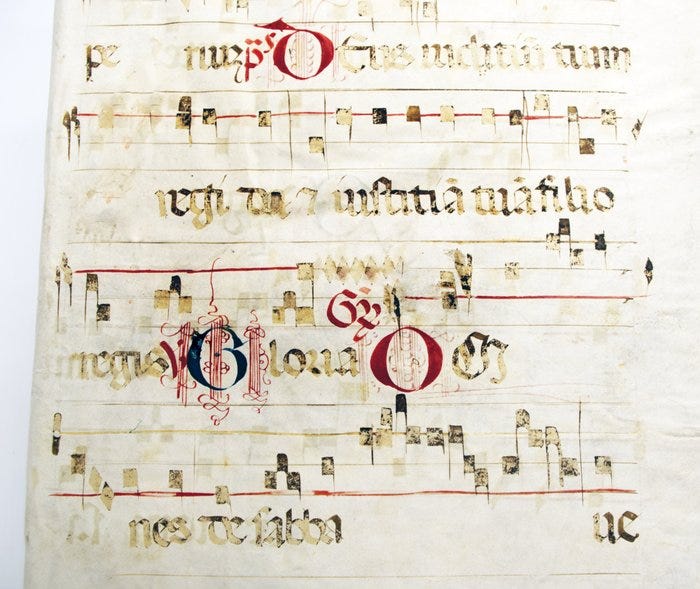 pe riuʒ ps DEus iudiciũ tuum
regi da ⁊ iustitiã tuã filio
regis V Gloria Gr̃ Om
nes de sabba ue